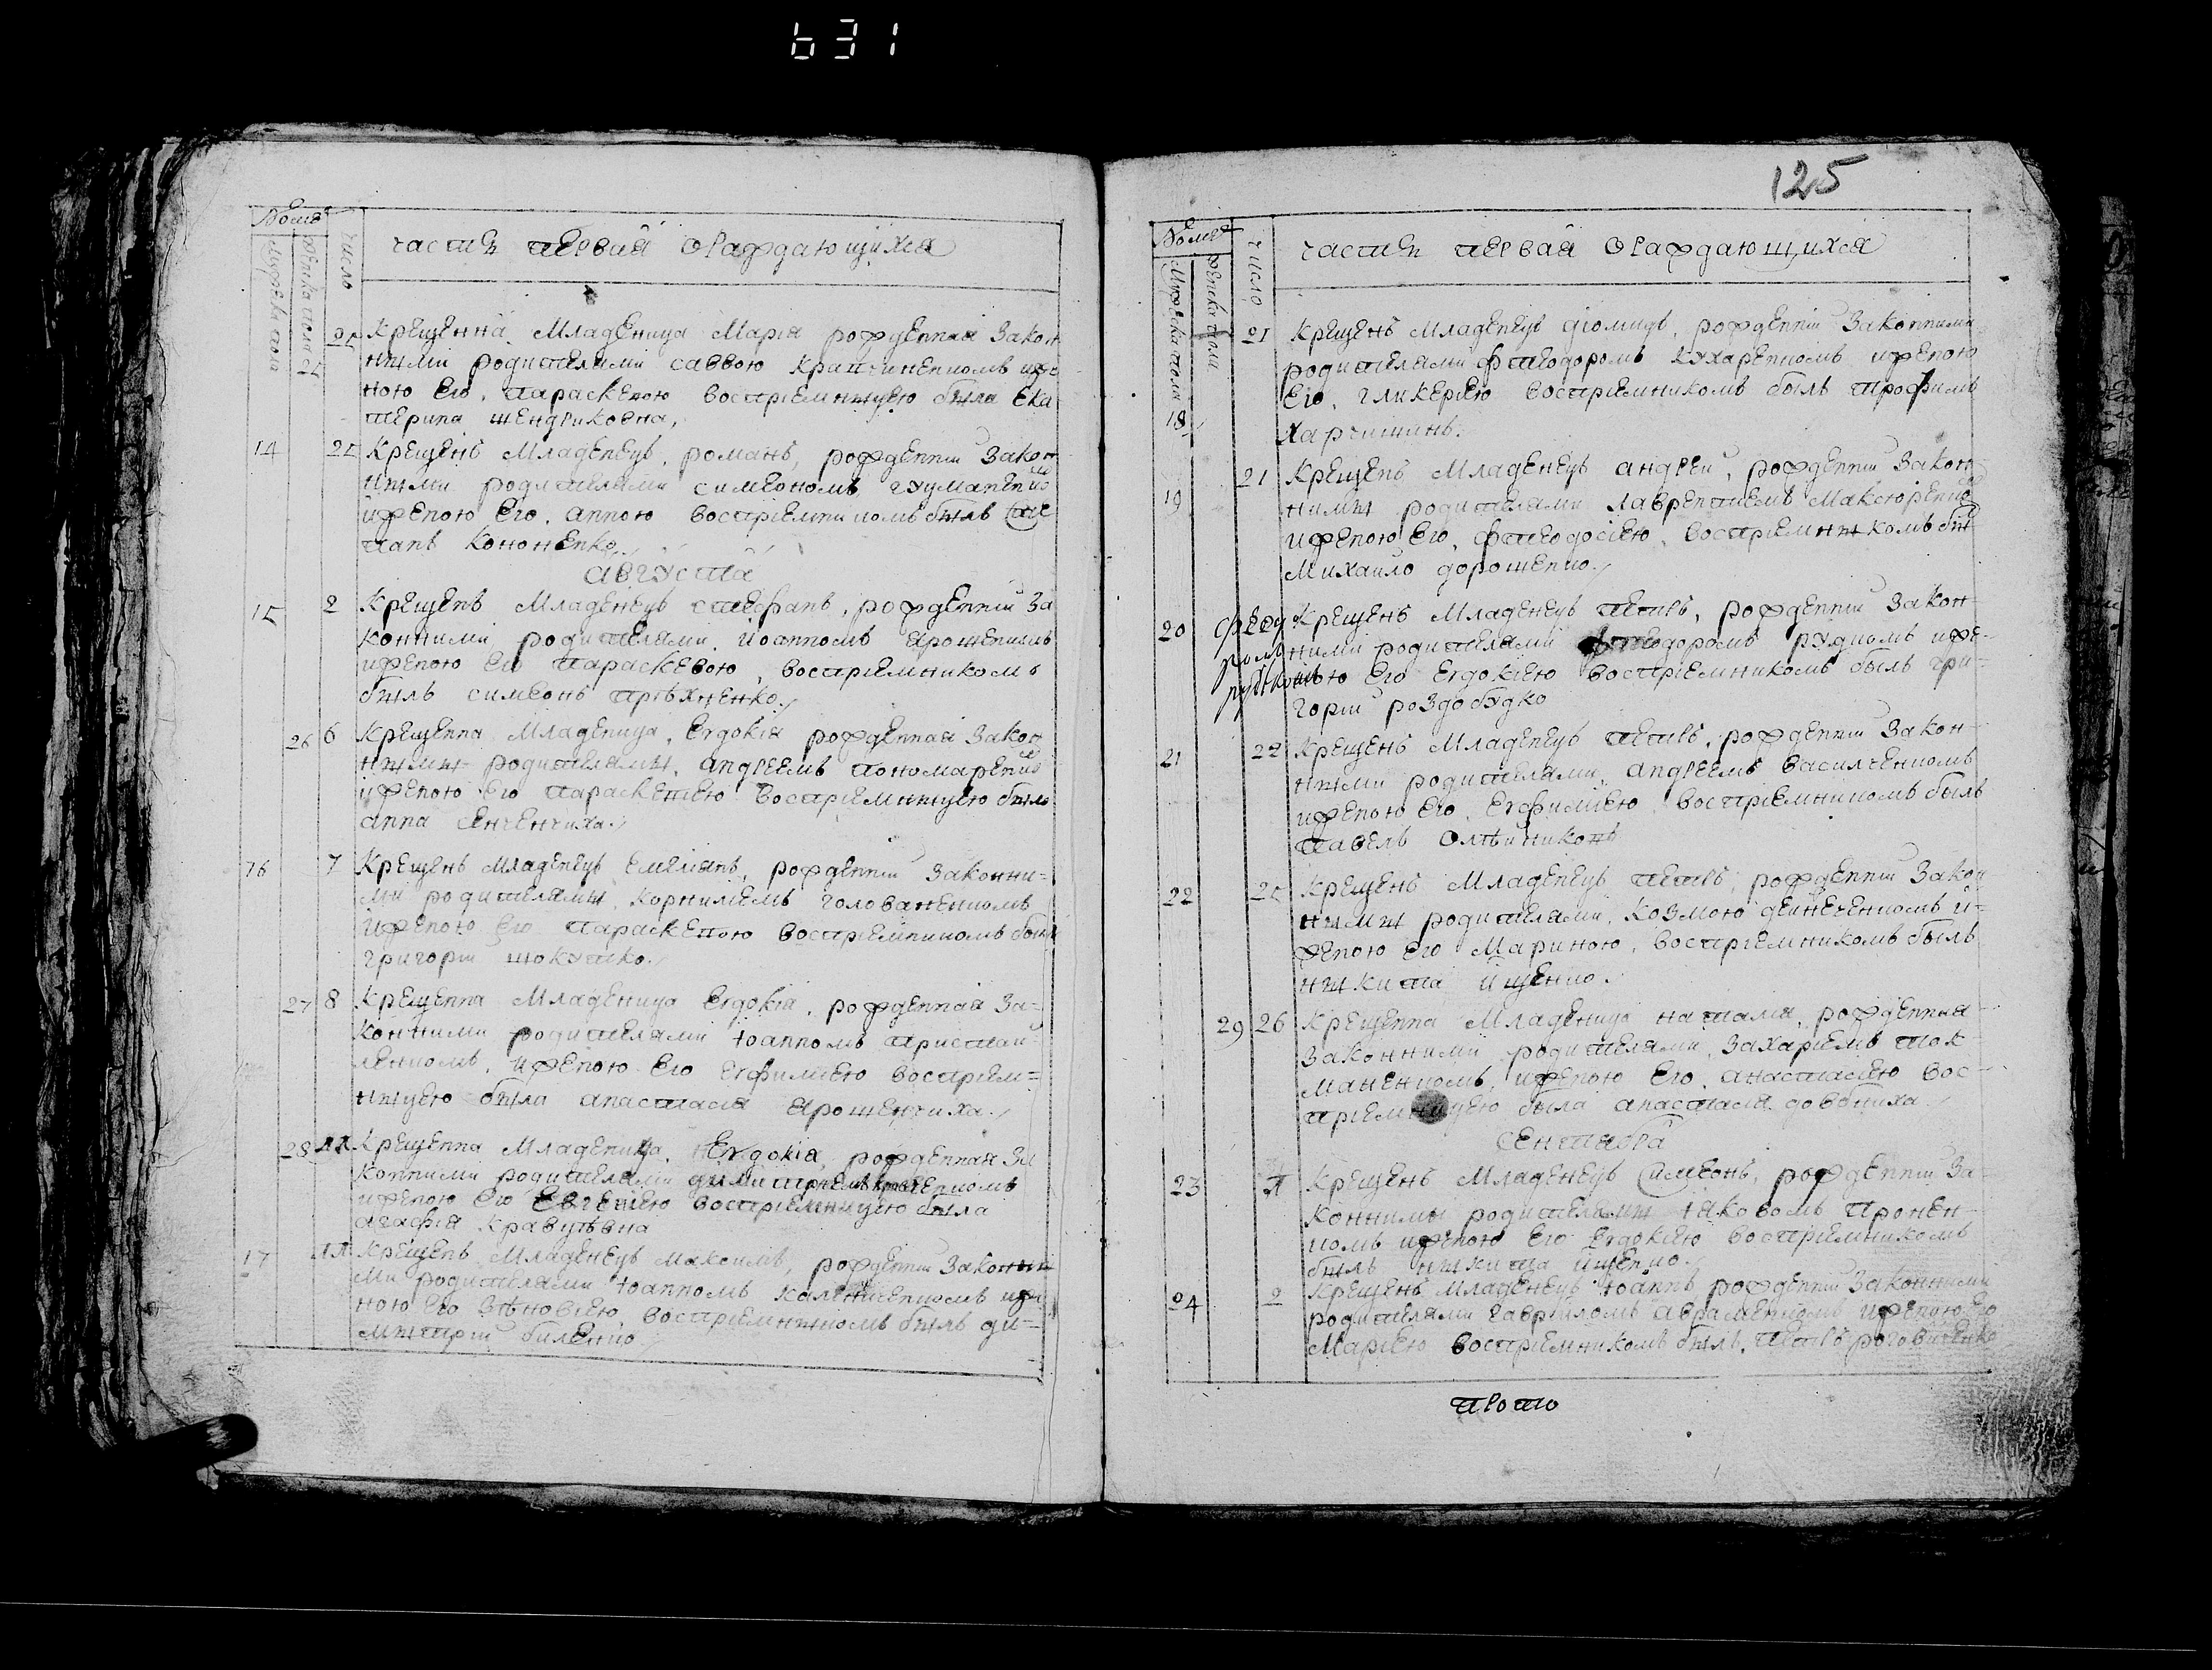 631
125
Номеръ
Мужеска пола
Женска пола
число
часть первая о раждающихся
25 25 Крещенна Младеница Марія рожденная Закон
ными родителями саввою Крап
ною Его параскевою воспріемницею была Ека
терина шендриковна
14 25 Крещенъ Младенецъ романъ, рожденній Закон
ными родителями симеономъ
и женою Его анною воспріемникомъ былъ сте
панъ Кононенко
августа
15 2 Крещенъ Младенецъ стефанъ, рожденній За
конними родителями іоанномъ ярошенкомъ
и женою Его параскевою, воспріемникомъ
былъ симеонъ
26 6 Крещенна Младеница, Евдокія рожденная Закон
ными родителямы, андреемъ пономаренко
и женою Его параскевіею воспріемницею была
анна Сенченчиха
16 7 Крещенъ Младенецъ Емеліанъ, рожденній Законни-
ми родителямы Корниліемъ голованенкомъ
и женою Его параскевою воспріемникомъ былъ
григорій шокутко
27 8 Крещенна Младеница Евдокія, рожденная За-
конними родителями іоанномъ пристай-
ленкомъ, и женою Его Евфиміею воспріем-
ницею была анастасія ярошенчиха
28 11 Крещенна Младеница, Евдокія, рожденная За
конними родителями димитріемъ
и женою Его Евгеніею воспріемницею была
агафія Кравцѣвна
17 11 Крещенъ Младенецъ максимъ, рожденній Законны
ми родителями іоанномъ Каленіченкомъ и же
ною Его Зѣновіею, воспріемникомъ былъ ди-
митрій биленко
Номеръ
Мужеска пола
Женска пола
число
часть первая о раждающихся
21 Крещенъ Младенецъ діомидъ, рожденній Законними
родителями фтеодоромъ Кухаренкомъ и женою
18 Его, гликеріею воспріемникомъ былъ трофимъ
Харчишинъ
21 Крещенъ Младенецъ андрей, рожденній Закон
19 нимы родителями лаврентіемъ Максюренко
и женою Его, фтеодосіею, воспріемныкомъ бы
Михайло дорошенко
20 Крещенъ Младенецъ петръ, рожденній Закон
ними родителями фтеодоромъ рудкомъ и же-
ною Его Евдокіею воспріемникомъ былъ гри-
горій роздобудко
21 22 Крещенъ Младенецъ петръ, рожденній Закон-
ными родителями, андреемъ василченкомъ
и женою Его, Евфиміею воспріемникомъ былъ
павелъ Олѣйниковъ
22 25 Крещенъ Младенецъ петръ, рожденній Закон
нымы родителями, Козмою дейнеченкомъ и-
женою Его Мариною, воспріемникомъ былъ
ныкита йщенко
29 26 Крещенна Младеница наталія, рожденная
Законними родителями, Захаріемъ ток
маненкомъ, и женою Его, анастасіею вос-
пріемницею была анастасія довбниха
сентября
23 1 Крещенъ Младенецъ Симеонъ, рожденній За-
коннимы родителямы іяковомъ пронен-
комъ и женою Его Евдокіею воспріемникомъ
былъ ныкита йщенко
24 2 Крещенъ Младенецъ іоаннъ, рожденній Законними
родителями гавріиломъ авраменкомъ и женою Его
Маріею воспріемникомъ былъ, петръ роговченко